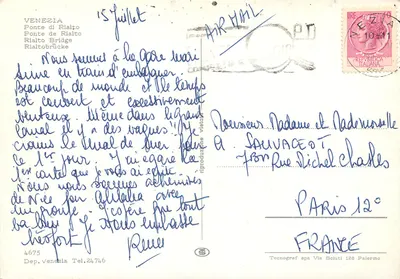 VENEZIA
Ponte di Rialto
Ponte de Rialto
Rialto Bridge
Rialtobrücke
15 Juillet
AIR MAIL
Nous sommes à la gare mari
time en train d'embarquer.
Beaucoup de monde et le temps
est couvert et excessivement
venteux. Même dans le grand
canal il y a des vagues! Je
crains le mal de mer pour
le 1er jour. J'ai égaré la
1ère carte que je vous ai écrite.
Nous nous sommes acheminés
de Nice par Alitalia avec
un groupe. J'espère que tout
va bien. Je vous embrasse
très fort. Renée
Monsieur Madame et Mademoiselle
A SAUVAGEOT
7 Rue Michel Chasles
PARIS 12°
FRANCE
4675
Dep. Venezia Tel. 24746